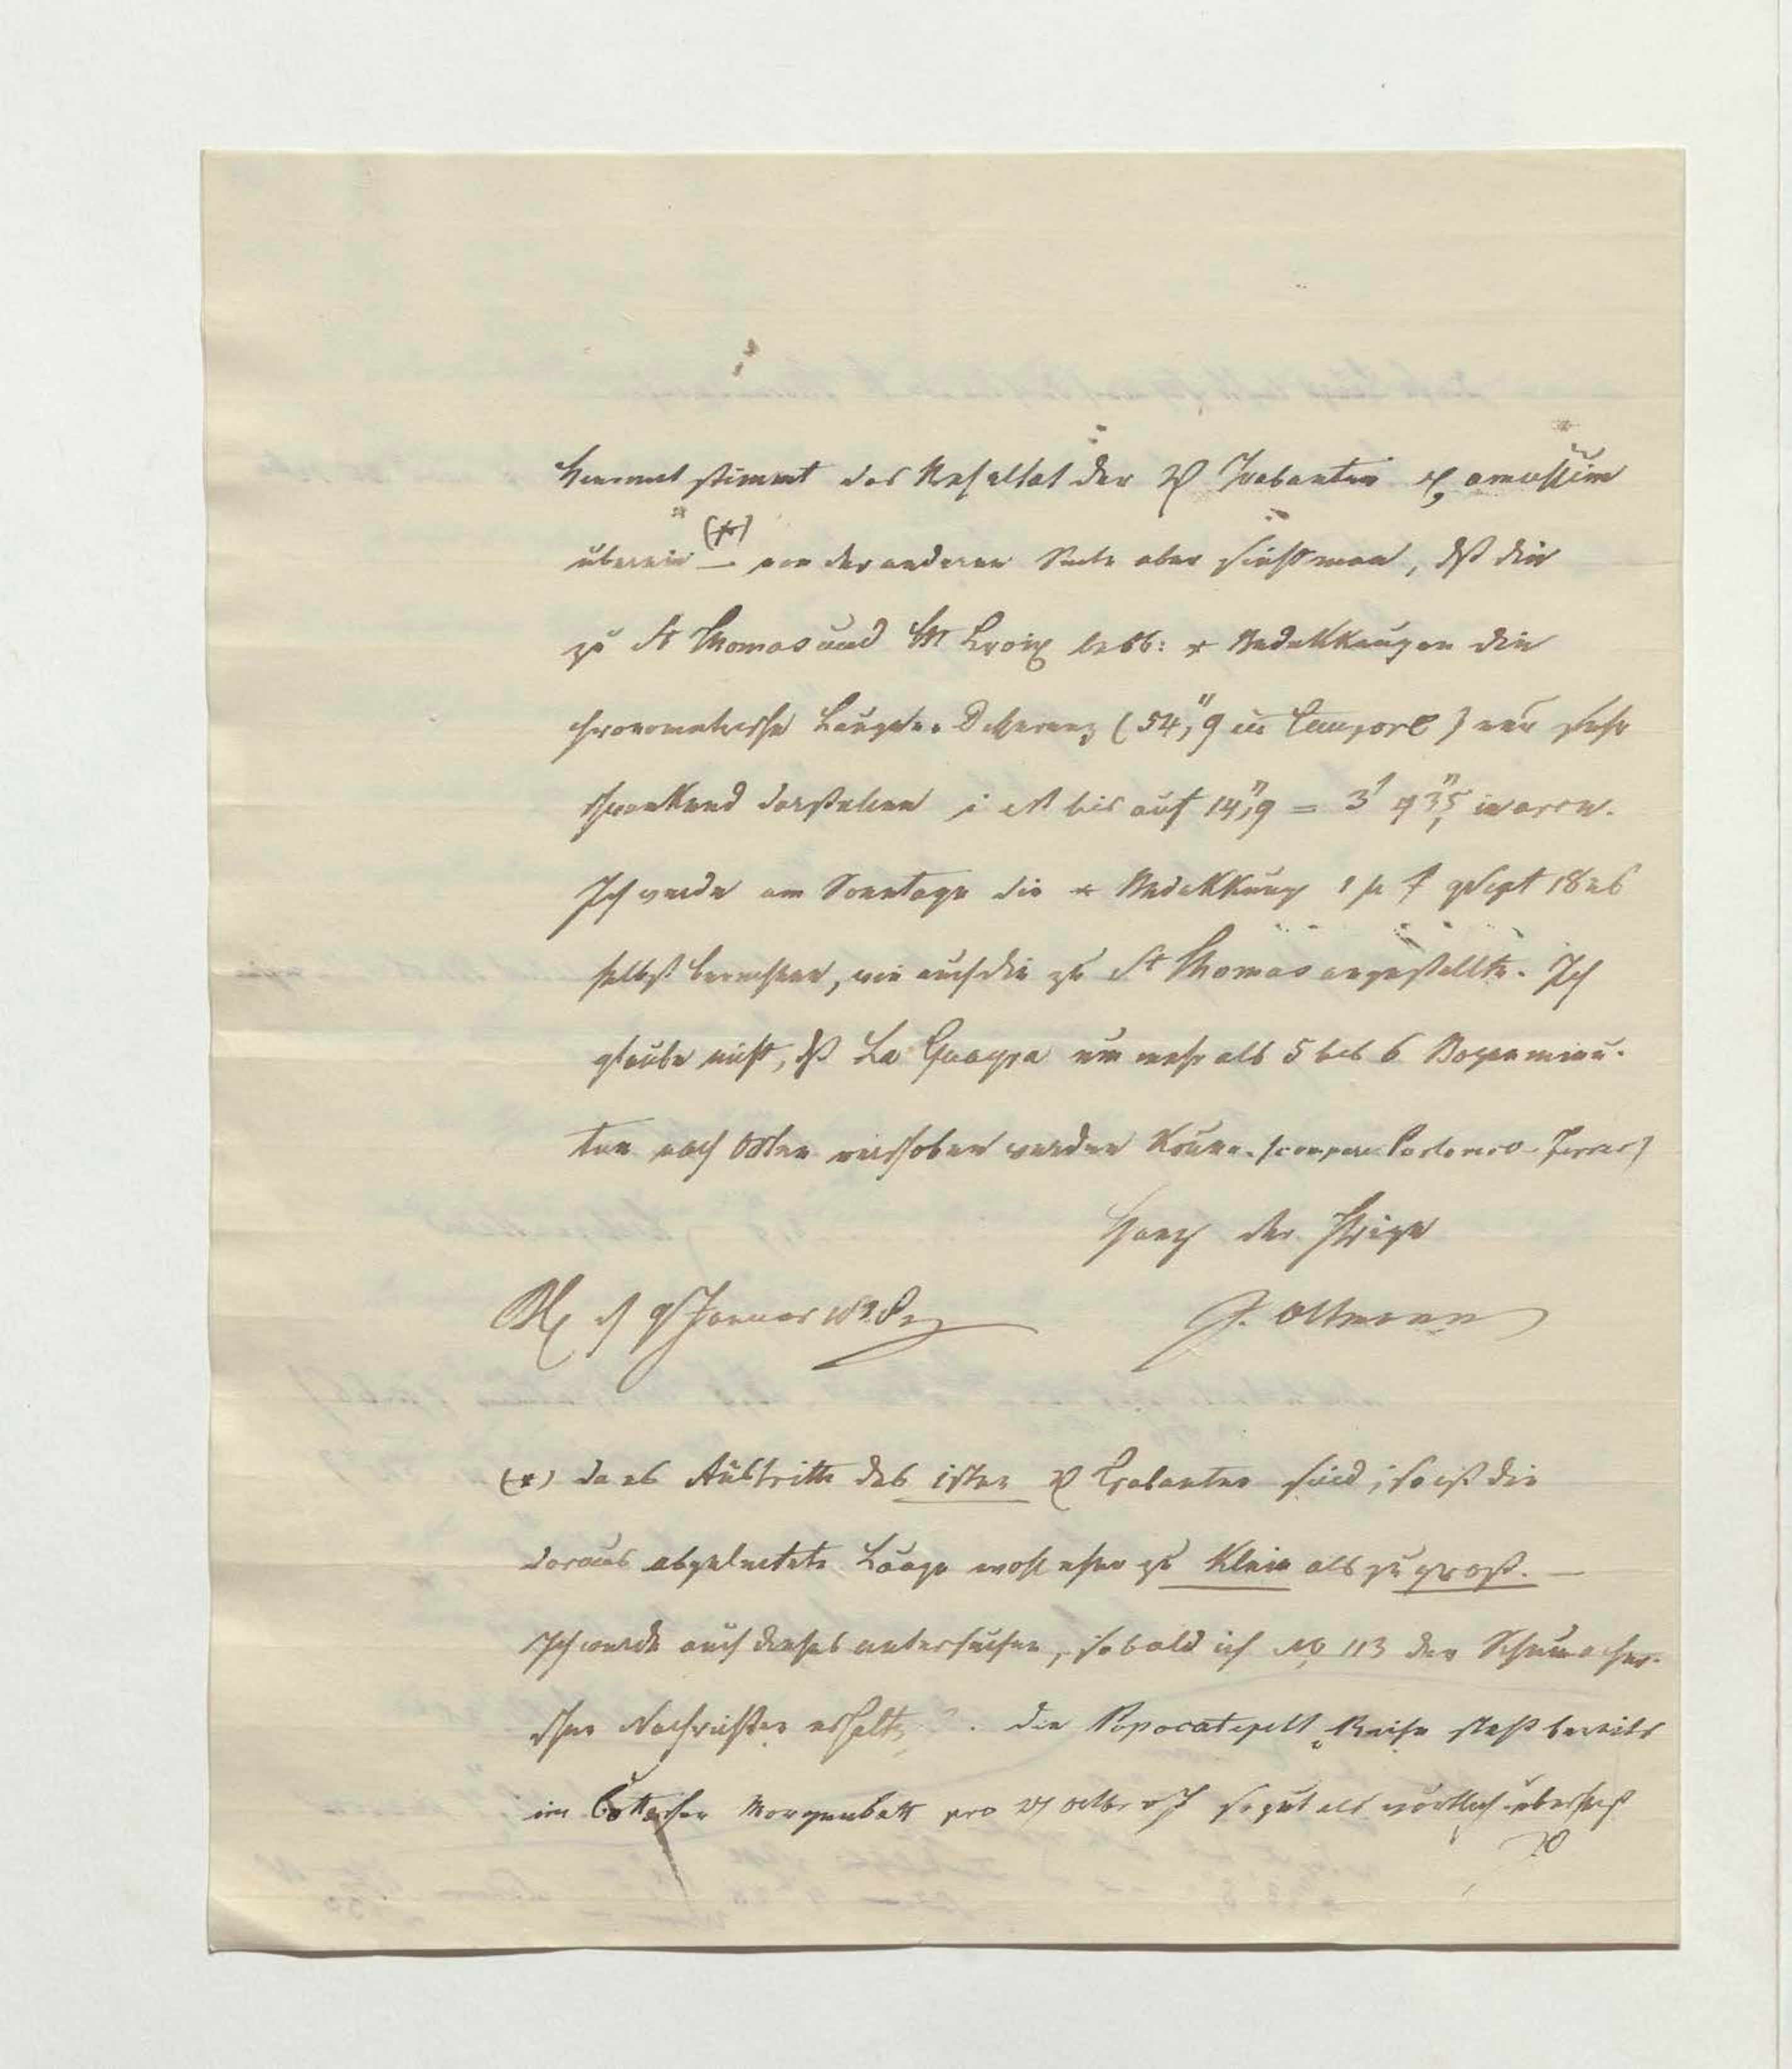 Hiermit stimmt das Resultat der ♃ Trabanten ex amussim
überein (*) — von der anderen Seite aber sieht man, dß die
zu St Thomas und St Croix beob: * Bedekkungen die
chronometrische Längen-Differenz (54",9 in tempore) nur sehr
schwankend darstellen i est bis auf 14",9 = 3' 43",5 in arcu.
Ich werde am Sonntage die * Bedekkung 1 μ Sept 1826
selbst berechnen, wie auch die zu St Thomas angestellte. Ich
glaube nicht, dß La Guayra um mehr als 5 bis 6 Bogenminu-
ten nach Osten verschoben werden könne. (compar: Portorico - Ferrer)
Ganz der Ihrige
d 9 Januar J. Oltmanns
(*) da es Austritte des 1sten ♃ Trabanten sind, so ist die
daraus abgeleitete Länge wohl eher zu klein als zu groß. —
Ich werde auch dieses untersuchen, sobald ich No 113 der Schumacher-
schen Nachrichten erhalte. die Popocatepetl Reise steht bereits
im Cottaischen Morgenblatt pro 27 octbr so gut als wörtlich übersezt